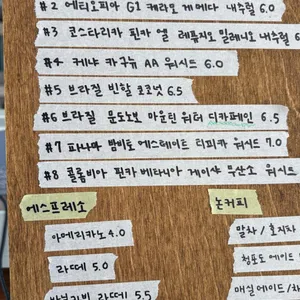 #2 에티오피아 G1 케라모 게메다 내추럴 6.0
#3 코스타리카 핀카 엘 레퓨지오 밀레니오 내추럴 6
#4 케냐 카구뉴 AA 워시드 6.0
#5 브라질 빈할 코코넛 6.5
#6 브라질 문도노보 마운틴 워터 디카페인 6.5
#7 파나마 밤비토 에스테이트 티피카 워시드 7.0
#8 콜롬비아 핀카 베타니아 게이샤 무산소 워시드
에스프레소
논커피
아메리카노 4.0
말차 / 호지차
라떼 5.0
청포도 에이드
바닐라빈 라떼 5.5
매실에이드/차